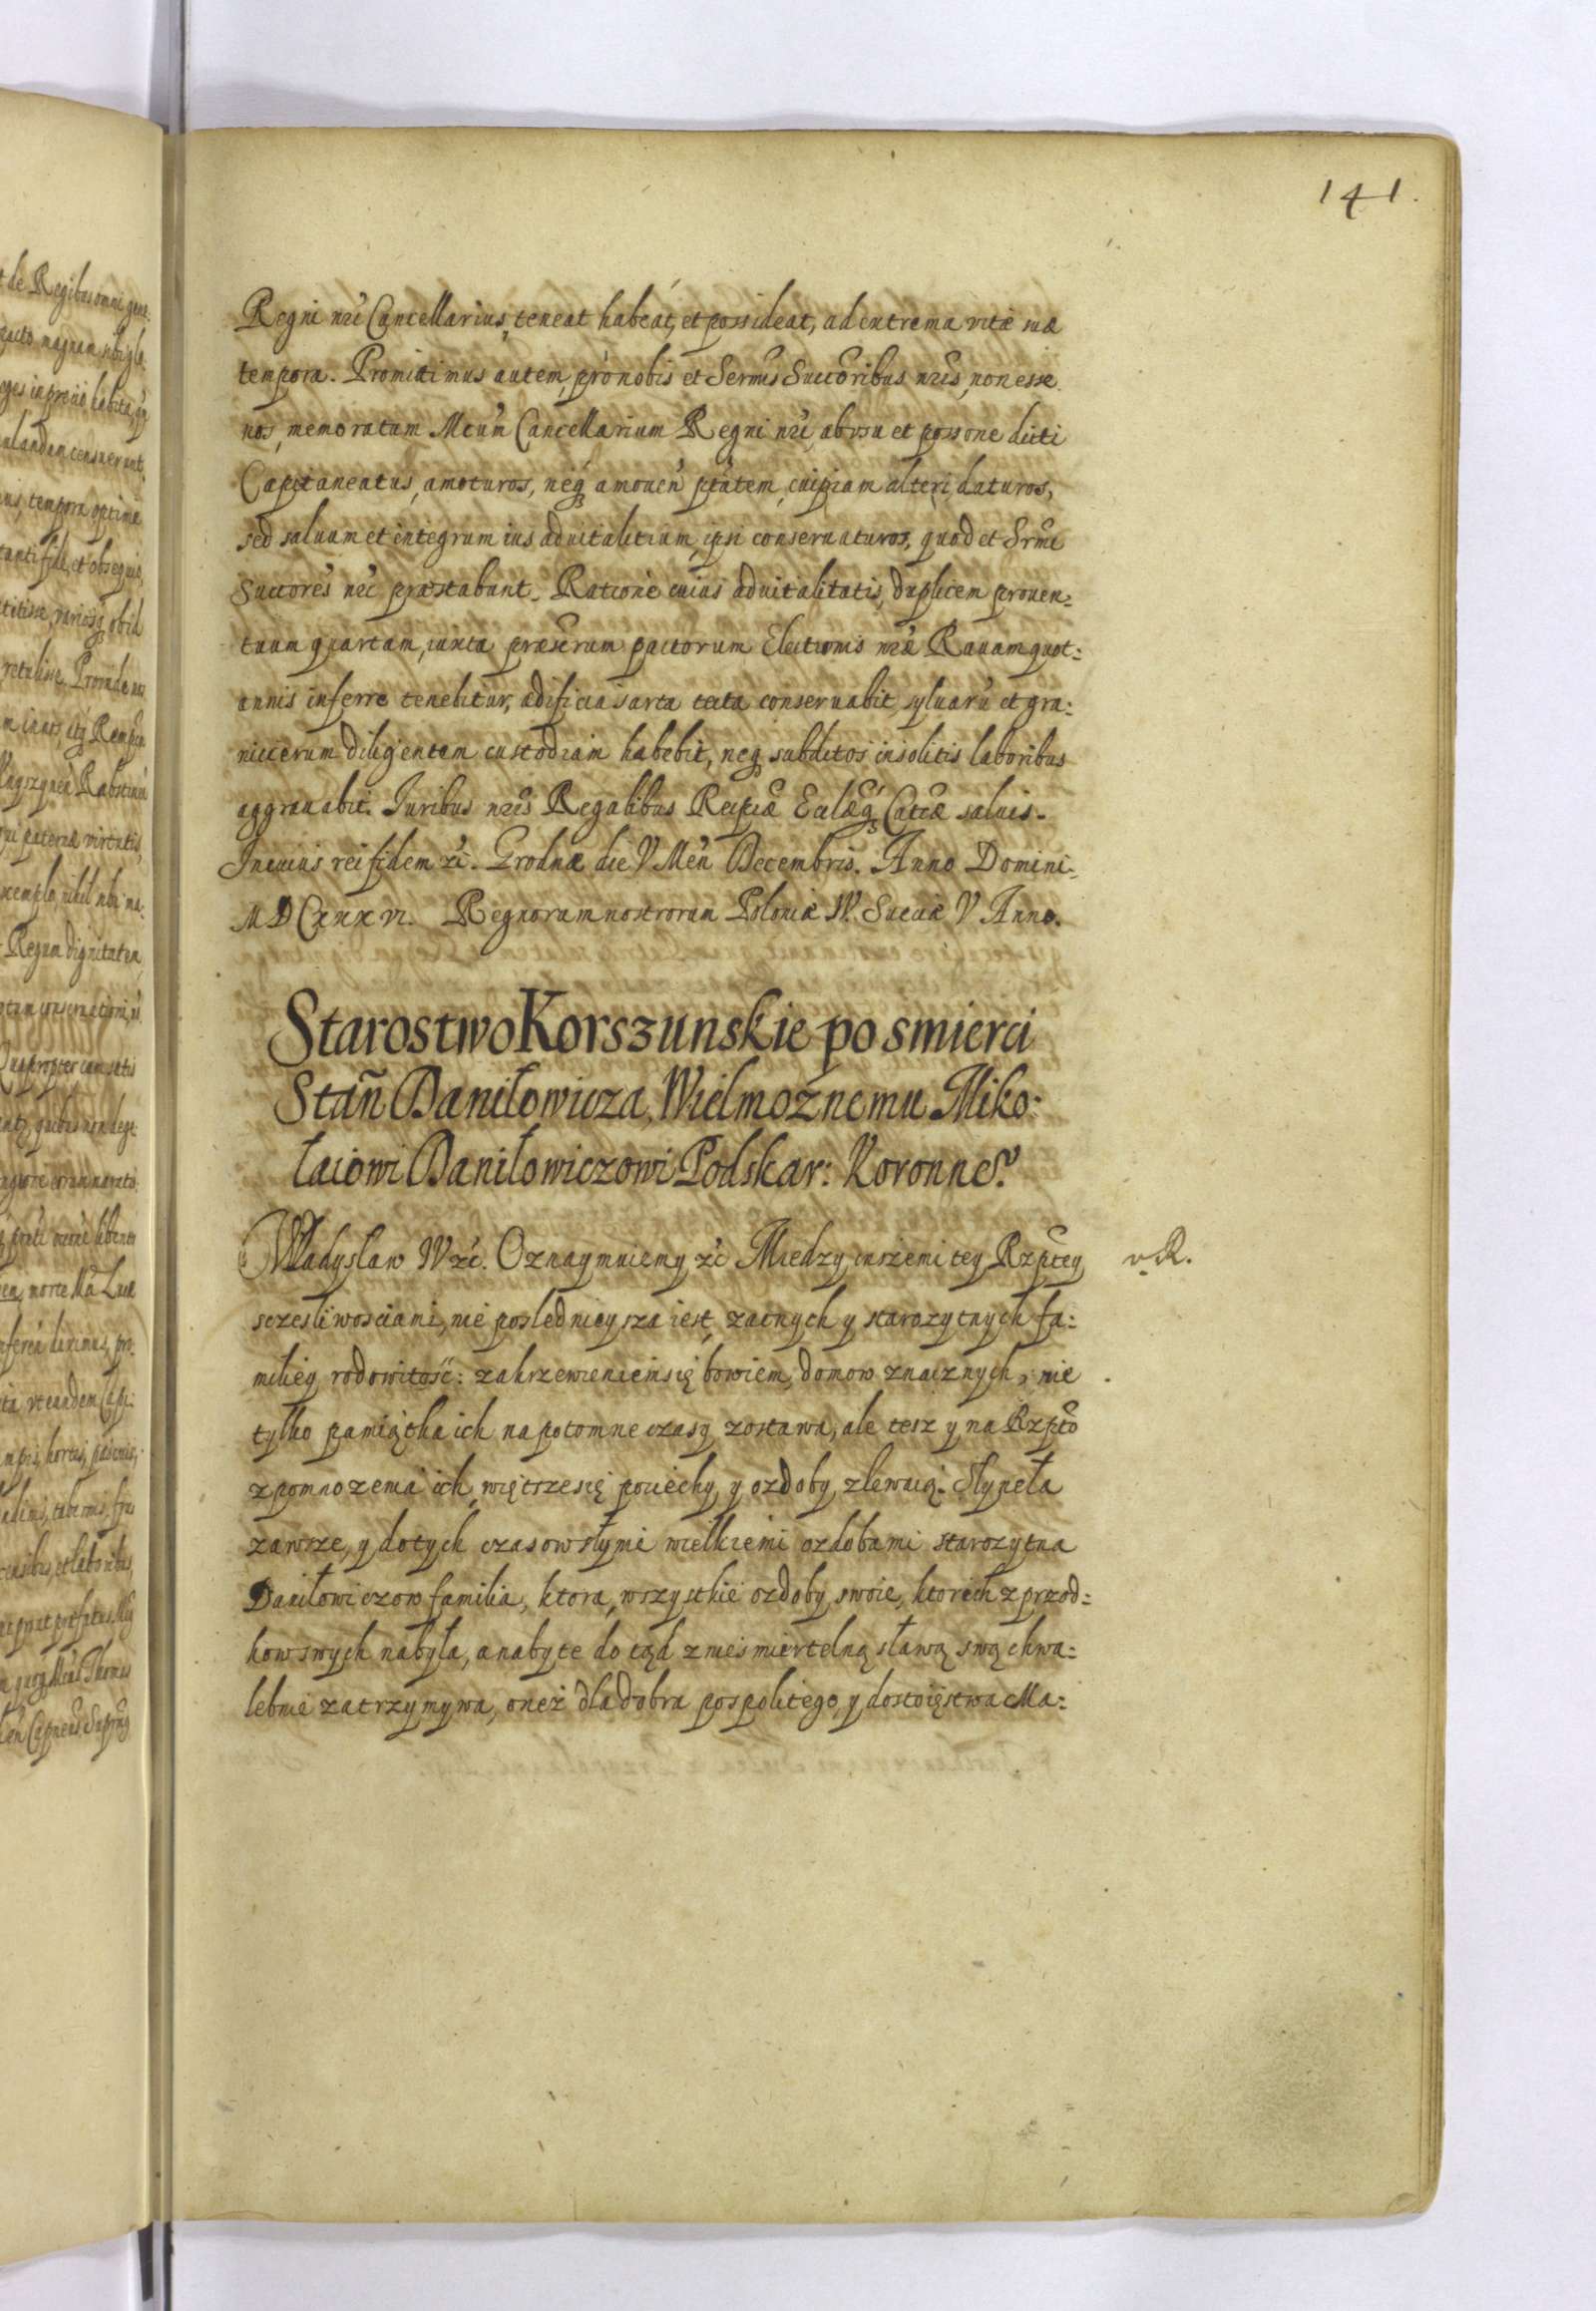 141.
Regni nři Cancellarius, teneat habeat, et possideat, ad extrema vitæ suæ
tempora. Promittimus autem, pro nobis et Sermis Succoribus nřis, non esse
nos, memoratum Mcum Cancellarium Regni nři, ab vsu et possone dicti
Capitaneatus, amoturos, neq₃ amouen ptatem, cuipiam alteri, daturos,
sed saluum et integrum ius aduitalitium, ipsi conseruaturos, quod et Srmi
Succores nři præstabunt. Ratione cuius aduitalitatis, duplicem prouen:
tuum quartam, iuxta præscrum pactorum Electionis nřæ Rauam quot:
annis inferre tenebitur, ædificia sarta tecta conseruabit, syluaru et gra:
niccierum diligentem custodiam habebit, neq₃ subditos insolitis laboribus
aggrauabit. Iuribus nřis Regalibus Reipcæ Eclæq₃ Catcæ saluis.
In cuius rei fidem ꝛc. Grodnæ die V Men Decembris. Anno Domini.
M D C xxx vi. Regnorum nostrorum Poloniæ IV. Sueciæ V Anno.
Starostwo Korszunskie po smierci
Stan Daniłowicza, Wielmożnemu Miko:
łaiowi Daniłowiczowi Podskar: Koronneº.
Władysław IV ꝛc. Oznaymuiemy ꝛc Miedzy inszemi tey Rzptey
v. R.
sczesliwosciami, nie poslednieysza iest, zacnych y starozytnych fa:
miliey rodowitość: zakrzewieniem się bowiem, domow znacznych, nie
tylko pamiątka ich na potomne czasy zostawa, ale tesz y na Rzpto
z pomnozenia ich, więtsze się pociechy, y ozdoby zlewaią. Słyneła
zawsze, y do tych czasow słynie wielkiemi ozdobami starozytna
Daniłowiczow familia, ktora, wszystkie ozdoby swoie, ktorich z przod:
kow swych nabyła, a nabyte do tąd z nieśmiertelną sławą swą chwa:
lebnie zatrzymywa, oneż dla dobra pospolitego, y dostoięstwa Ma: